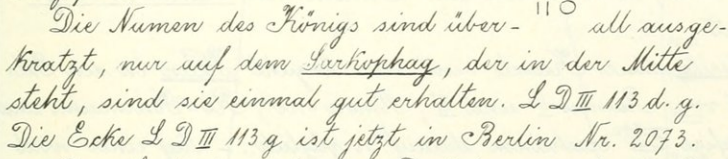 Die Numen des Königs sind über- 110 all ausge-
kratzt, nur auf dem Sarkophag, der in der Mitte
steht, sind sie einmal gut erhalten. L D III 113 d. g.
Die Ecke L D III 113 g ist jetzt in Berlin Nr. 2073.